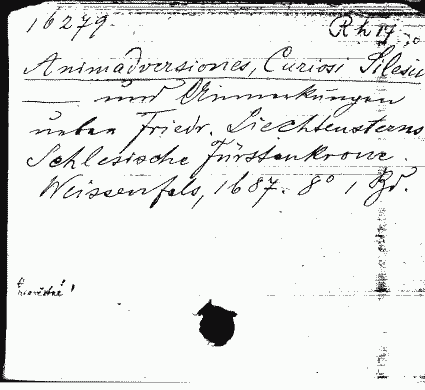 16279.
Rh 17
Animadversiones, Curiosi Silesii
— und Anmerkungen
ueber Friedr. Liechtensterns
Schlesische Fürstenkrone.
Weissenfels, 1687. 8° 1 Bd.